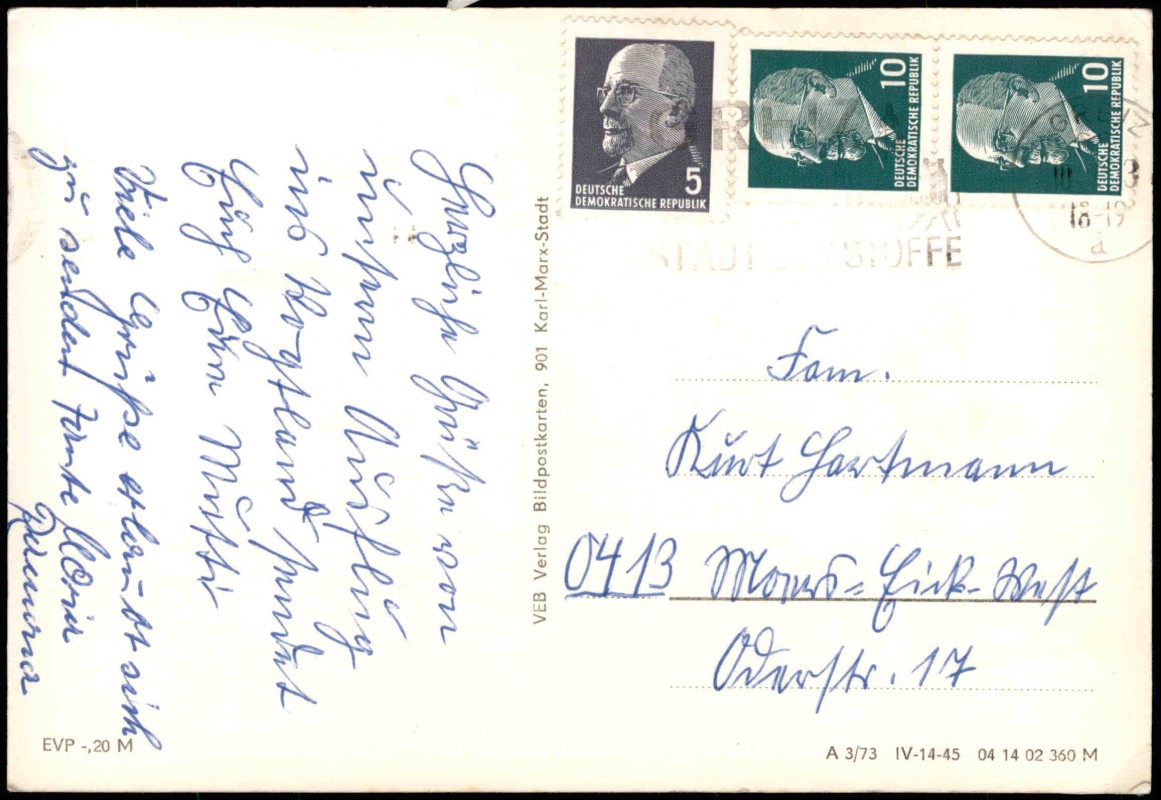 Herzliche Grüße von
Ausflug
ins Vogtland sendet
Euch Eure Mutti
Viele Grüsse erlaubt sich
zu senden Tante
EVP -,20 M
VEB Verlag Bildpostkarten, 901 Karl-Marx-Stadt
DEUTSCHE
DEMOKRATISCHE REPUBLIK 5
10
DEUTSCHE
DEMOKRATISCHE REPUBLIK
10
DEUTSCHE
DEMOKRATISCHE REPUBLIK
GREIZ
STADT DER STOFFE
18-19
a
Fam.
Kurt Hartmann
0413 Moers-Eick-West
Oderstr. 17
A 3/73 IV-14-45 04 14 02 360 M